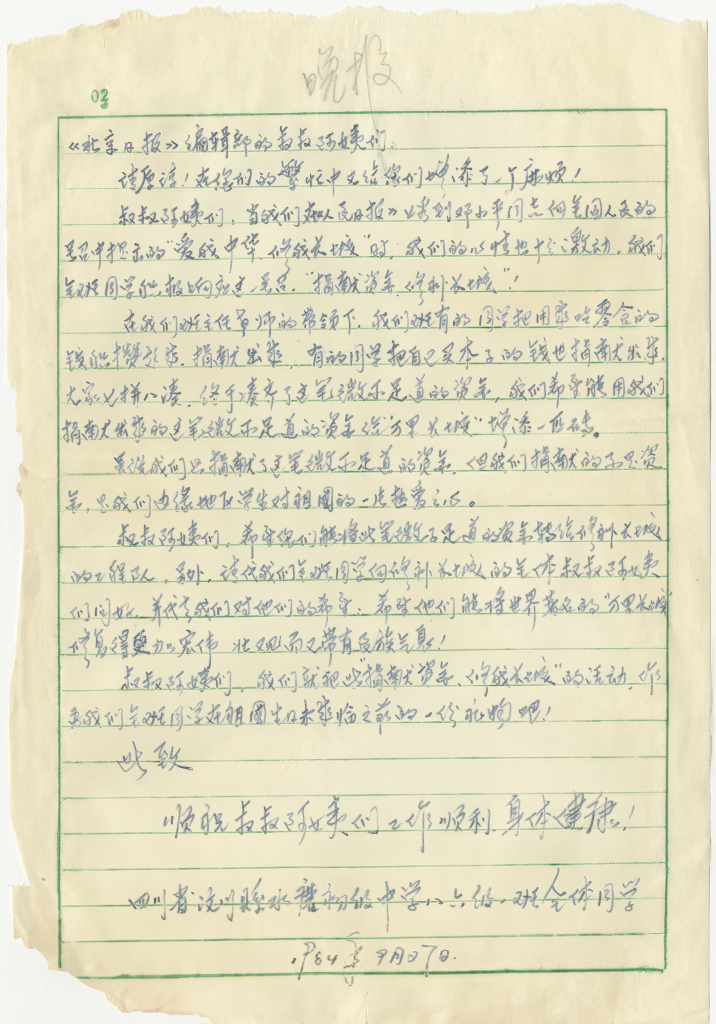 晚报
02
《北京日报》编辑部的叔叔阿姨们:
请原谅!在您们的繁忙中又给您们增添了一个麻烦!
叔叔阿姨们,当我们在《人民日报》上看到邓小平同志向全国人民的
号召中提出的"爱我中华,修我长城"时,我们的心情也十分激动,我们
全班同学积极响应这一号召,"捐献资金,修补长城"!
在我们班主任老师的带领下,我们班有的同学把用来吃零食的
钱积攒起来,捐献出来,有的同学把自己买本子的钱也捐献出来,
大家七拼八凑,终于凑齐了这笔微不足道的资金,我们希望能用我们
捐献出来的这笔微不足道的资金给"万里长城"增添一匹砖。
虽说我们只捐献了这笔微不足道的资金,但我们捐献的不是资
金,是我们边缘地区学生对祖国的一片热爱之心。
叔叔阿姨们,希望您们能将此笔微不足道的资金转给修补长城
的工程队,另外,请代我们全班同学向修补长城的全体叔叔阿姨
们问好,并代表我们对他们的希望:希望他们能将世界著名的"万里长城"
修复得更加宏伟、壮观而又带有民族气息!
叔叔阿姨们,我们就把此"捐献资金、修我长城"的活动,作
为我们全班同学在祖国生日来临之前的一份礼物吧!
此致
顺祝叔叔阿姨们工作顺利、身体健康!
四川省汶川县水磨初级中学八六级一班全体同学
1984年9月27日.